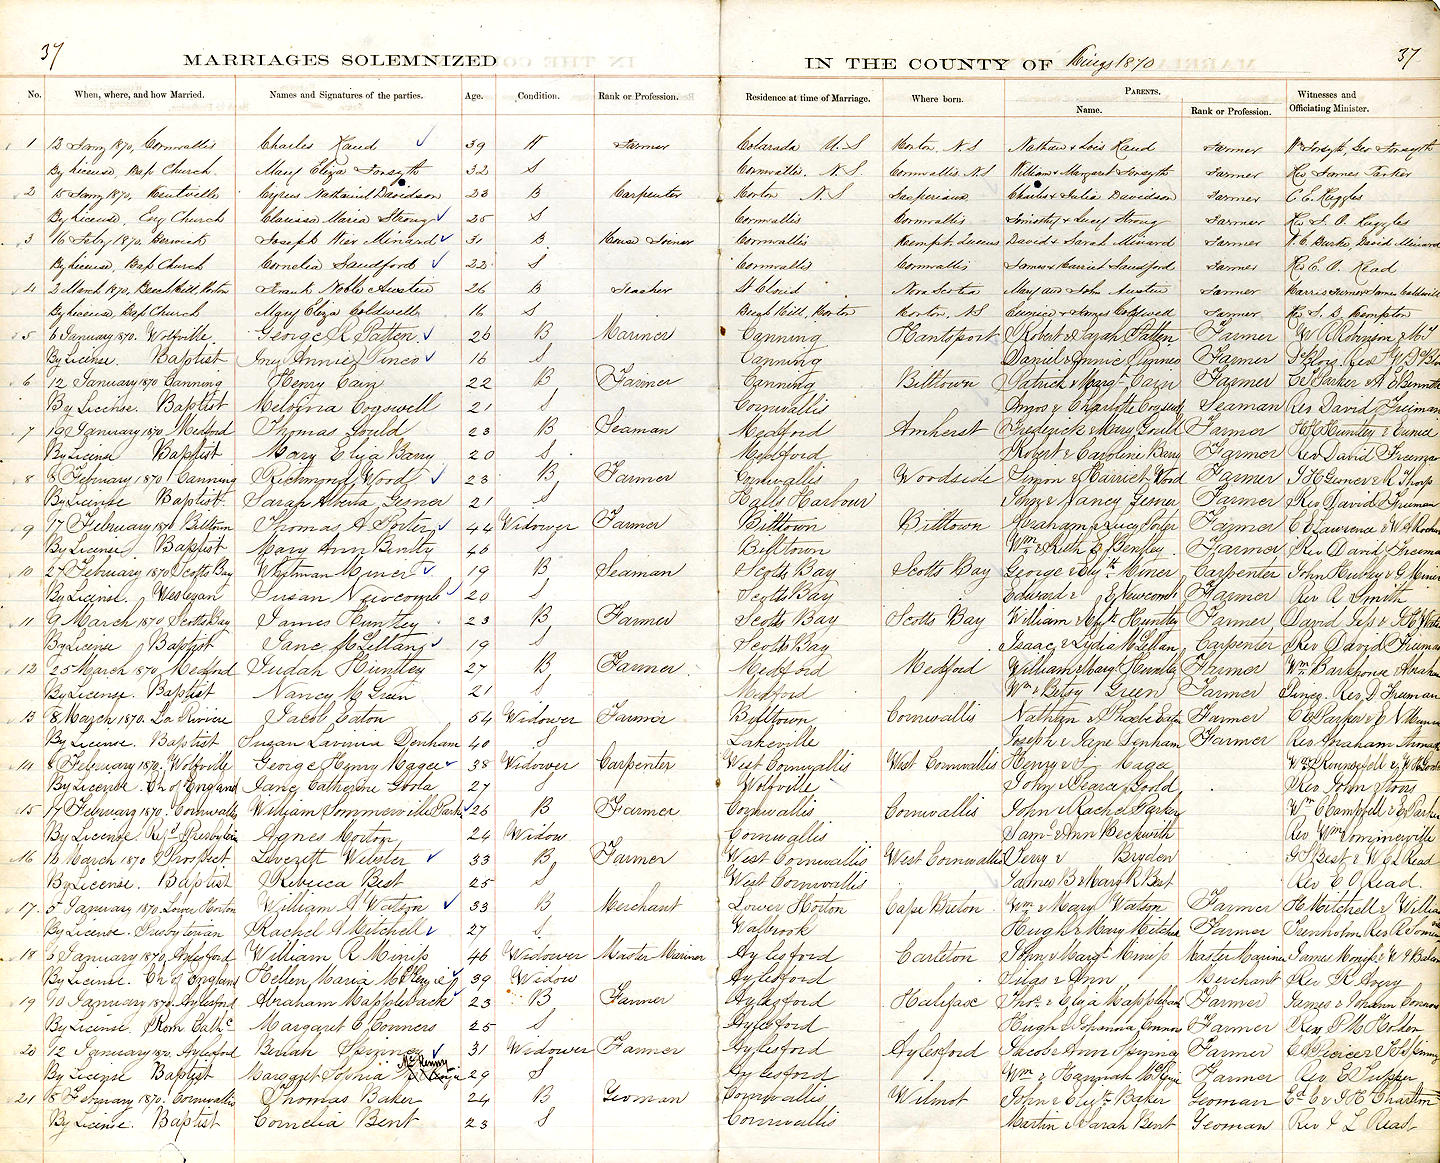 37 MARRIAGES SOLEMNIZED IN THE COUNTY OF Kings 1870 37
No. When, where, and how Married. Names and Signatures of the parties. Age. Condition. Rank or Profession. Residence at time of Marriage. Where born. PARENTS. Name. Rank or Profession. Witnesses and Officiating Minister.
1 13 Jany 1870, Cornwallis Charles Rand 39 Farmer Colarada U.S Horton, N.S Nathan & Lois Rand Farmer Wm Forsyth, Geo Forsyth
By license, Bap Church. Mary Eliza Forsyth 32 S Cornwallis. N.S. Cornwallis N.S William & Margaret Forsyth Farmer Rev James Parker
2 15 Jany 1870, Kentville Cyrus Nathaniel Davidson 23 B Carpenter Horton N.S Gaspereaux Charles & Julia Davidson Farmer
By license, Eng Church Clarissa Maria Strong 25 S Cornwallis Cornwallis Timothy & Lucy Strong Farmer Rev J. O. Ruggles
3 16 Feby 1870, Berwick Joseph Weir Minard 31 B House Joiner Cornwallis Kempt, Queens David & Sarah Minard Farmer David Minard
By license, Bap Church Cornelia Sandford 22 S Cornwallis Cornwallis James & Harriet Sandford Farmer Rev E. O. Read
4 2 March 1870, Beech Hill, Horton Frank Noble Austen 26 B Teacher St Cloud Nova Scotia Mary and John Austen Farmer Harris Turner James Coldwell
By license, Bap Church Mary Eliza Coldwell 16 S Beech Hill, Horton Horton, NS Eunice & James Coldwell Farmer Rev S. B. Kempton
5 6 January 1870. Wolfville. George R Patten 26 B Mariner Canning Hantsport Robert & Sarah Patten Farmer W R Robinson &
By License. Baptist Annie Pineo 16 S Canning Daniel & Annie Pineo Farmer
6 12 January 1870 Canning Henry Cain 22 B Farmer Canning Billtown Patrick & Margt Cain Farmer Bennett
By License. Baptist Melvina Cogswell 21 S Cornwallis Amos & Charlotte Cogswell Seaman Rev David Freeman
7 19 January 1870 Medford Thomas Gould 23 B Seaman Medford Amherst Frederick & Mary Gould Farmer Huntley & Eunice
By License Baptist Mary Eliza Barry 20 S Medford Robert & Caroline Barry Farmer Rev David Freeman
8 8 February 1870 Canning Richmond Wood 23 B Farmer Cornwallis Woodside Simon & Harriet Wood Farmer J H Gesner & R Thorp
By License Baptist Sarah Alberta Gesner 21 S Halls Harbour & Nancy Gesner Farmer Rev David Freeman
9 17 February 1870 Billtown Thomas A Porter 44 Widower Farmer Billtown Billtown Abraham & Lucy Porter Farmer C E Lawrence &
By License Baptist Mary Ann Bently 46 S Billtown Wm & Ruth E Bentley Farmer Rev David Freeman
10 27 February 1870 Scotts Bay Whitman Miner 19 B Seaman Scotts Bay Scotts Bay George & Elizth Miner Carpenter John Huntley & G Miner
By License. Wesleyan Susan Newcomb 20 S Scotts Bay Edward & E Newcomb Farmer Rev R Smith
11 9 March 1870 Scotts Bay James Huntley 23 B Farmer Scotts Bay Scotts Bay William & Huntley Farmer David
By License Baptist Jane McLellan 19 S Scotts Bay Isaac & Lydia McLellan Carpenter Rev David Freeman
12 25 March 1870 Medford Judah Huntley 27 B Farmer Medford Medford William & Margt Huntley Farmer Wm Barkhouse & Abraham
By License. Baptist Nancy M Green 21 S Medford Wm & Betsy Green Farmer Pineo. Rev D Freeman
13 8 March 1870. La Riviere Jacob Eaton 54 Widower Farmer Billtown Cornwallis Nathan & Phoebe Eaton Farmer C E Parker & E N
By License. Baptist Susan Lavinia Denham 40 S Lakeville Joseph & Jane Denham Farmer Rev Abraham
14 8 February 1870. Wolfville George Henry Magee 38 Widower Carpenter West Cornwallis West Cornwallis Henry & Magee
By License. Ch of England Jane Catherine Goold 27 Wolfville John & Pearcy Goold Rev John Storrs
15 17 February 1870. Cornwallis William Sommerville Parker 26 B Farmer Cornwallis Cornwallis John & Rachel Parker Wm Campbell & E Parker
By License. Refd Presbyterian Agnes Morton 24 Widow Cornwallis Saml & Ann Beckwith Rev Wm Sommerville
16 16 March 1870 Prospect Leverett Webster 33 B Farmer West Cornwallis West Cornwallis & Bryden G S Best & W C L Read
By License. Baptist Rebecca Best 25 S West Cornwallis James B & Mary R Best Rev E O Read.
17. 5 January 1870. Lower Horton William J Watson 33 B Merchant Lower Horton Cape Breton. Wm & Mary Watson Farmer H Mitchell & William
By License. Presbyterian Rachel A Mitchell 27 S Walbrook Hugh & Mary Mitchell Farmer Trenholm Rev R
18 6 January 1870, Aylesford William R Minip 46 Widower Master Mariner Aylesford Carleton John & Margt Minip Master Mariner
By License. Ch of England Hellen Maria 39 Widow Aylesford Silas & Ann Merchant Rev R Avery
19 10 January 1870. Aylesford Abraham Mapplebeck 23 B Farmer Aylesford Halifax Thos & Eliza Mapplebeck Farmer James & Johann Connors
By License. Rom Cathc Margaret C Connors 25 S Aylesford Hugh & Johanna Connors Farmer Rev P M Holden
20 12 January 1870. Aylesford Beriah Spinney 31 Widower Farmer Aylesford Aylesford Jacob & Ann Spinney Farmer Spinney
By License Baptist Margaret Sophia 29 S Aylesford Wm & Hannah Farmer Rev E Tupper
21 18 February 1870. Cornwallis Thomas Baker 24 B Yeoman Cornwallis Wilmot John & Elizth Baker Yeoman
By License. Baptist Cornelia Bent 23 S Cornwallis Martin & Sarah Bent Yeoman Rev J L Read